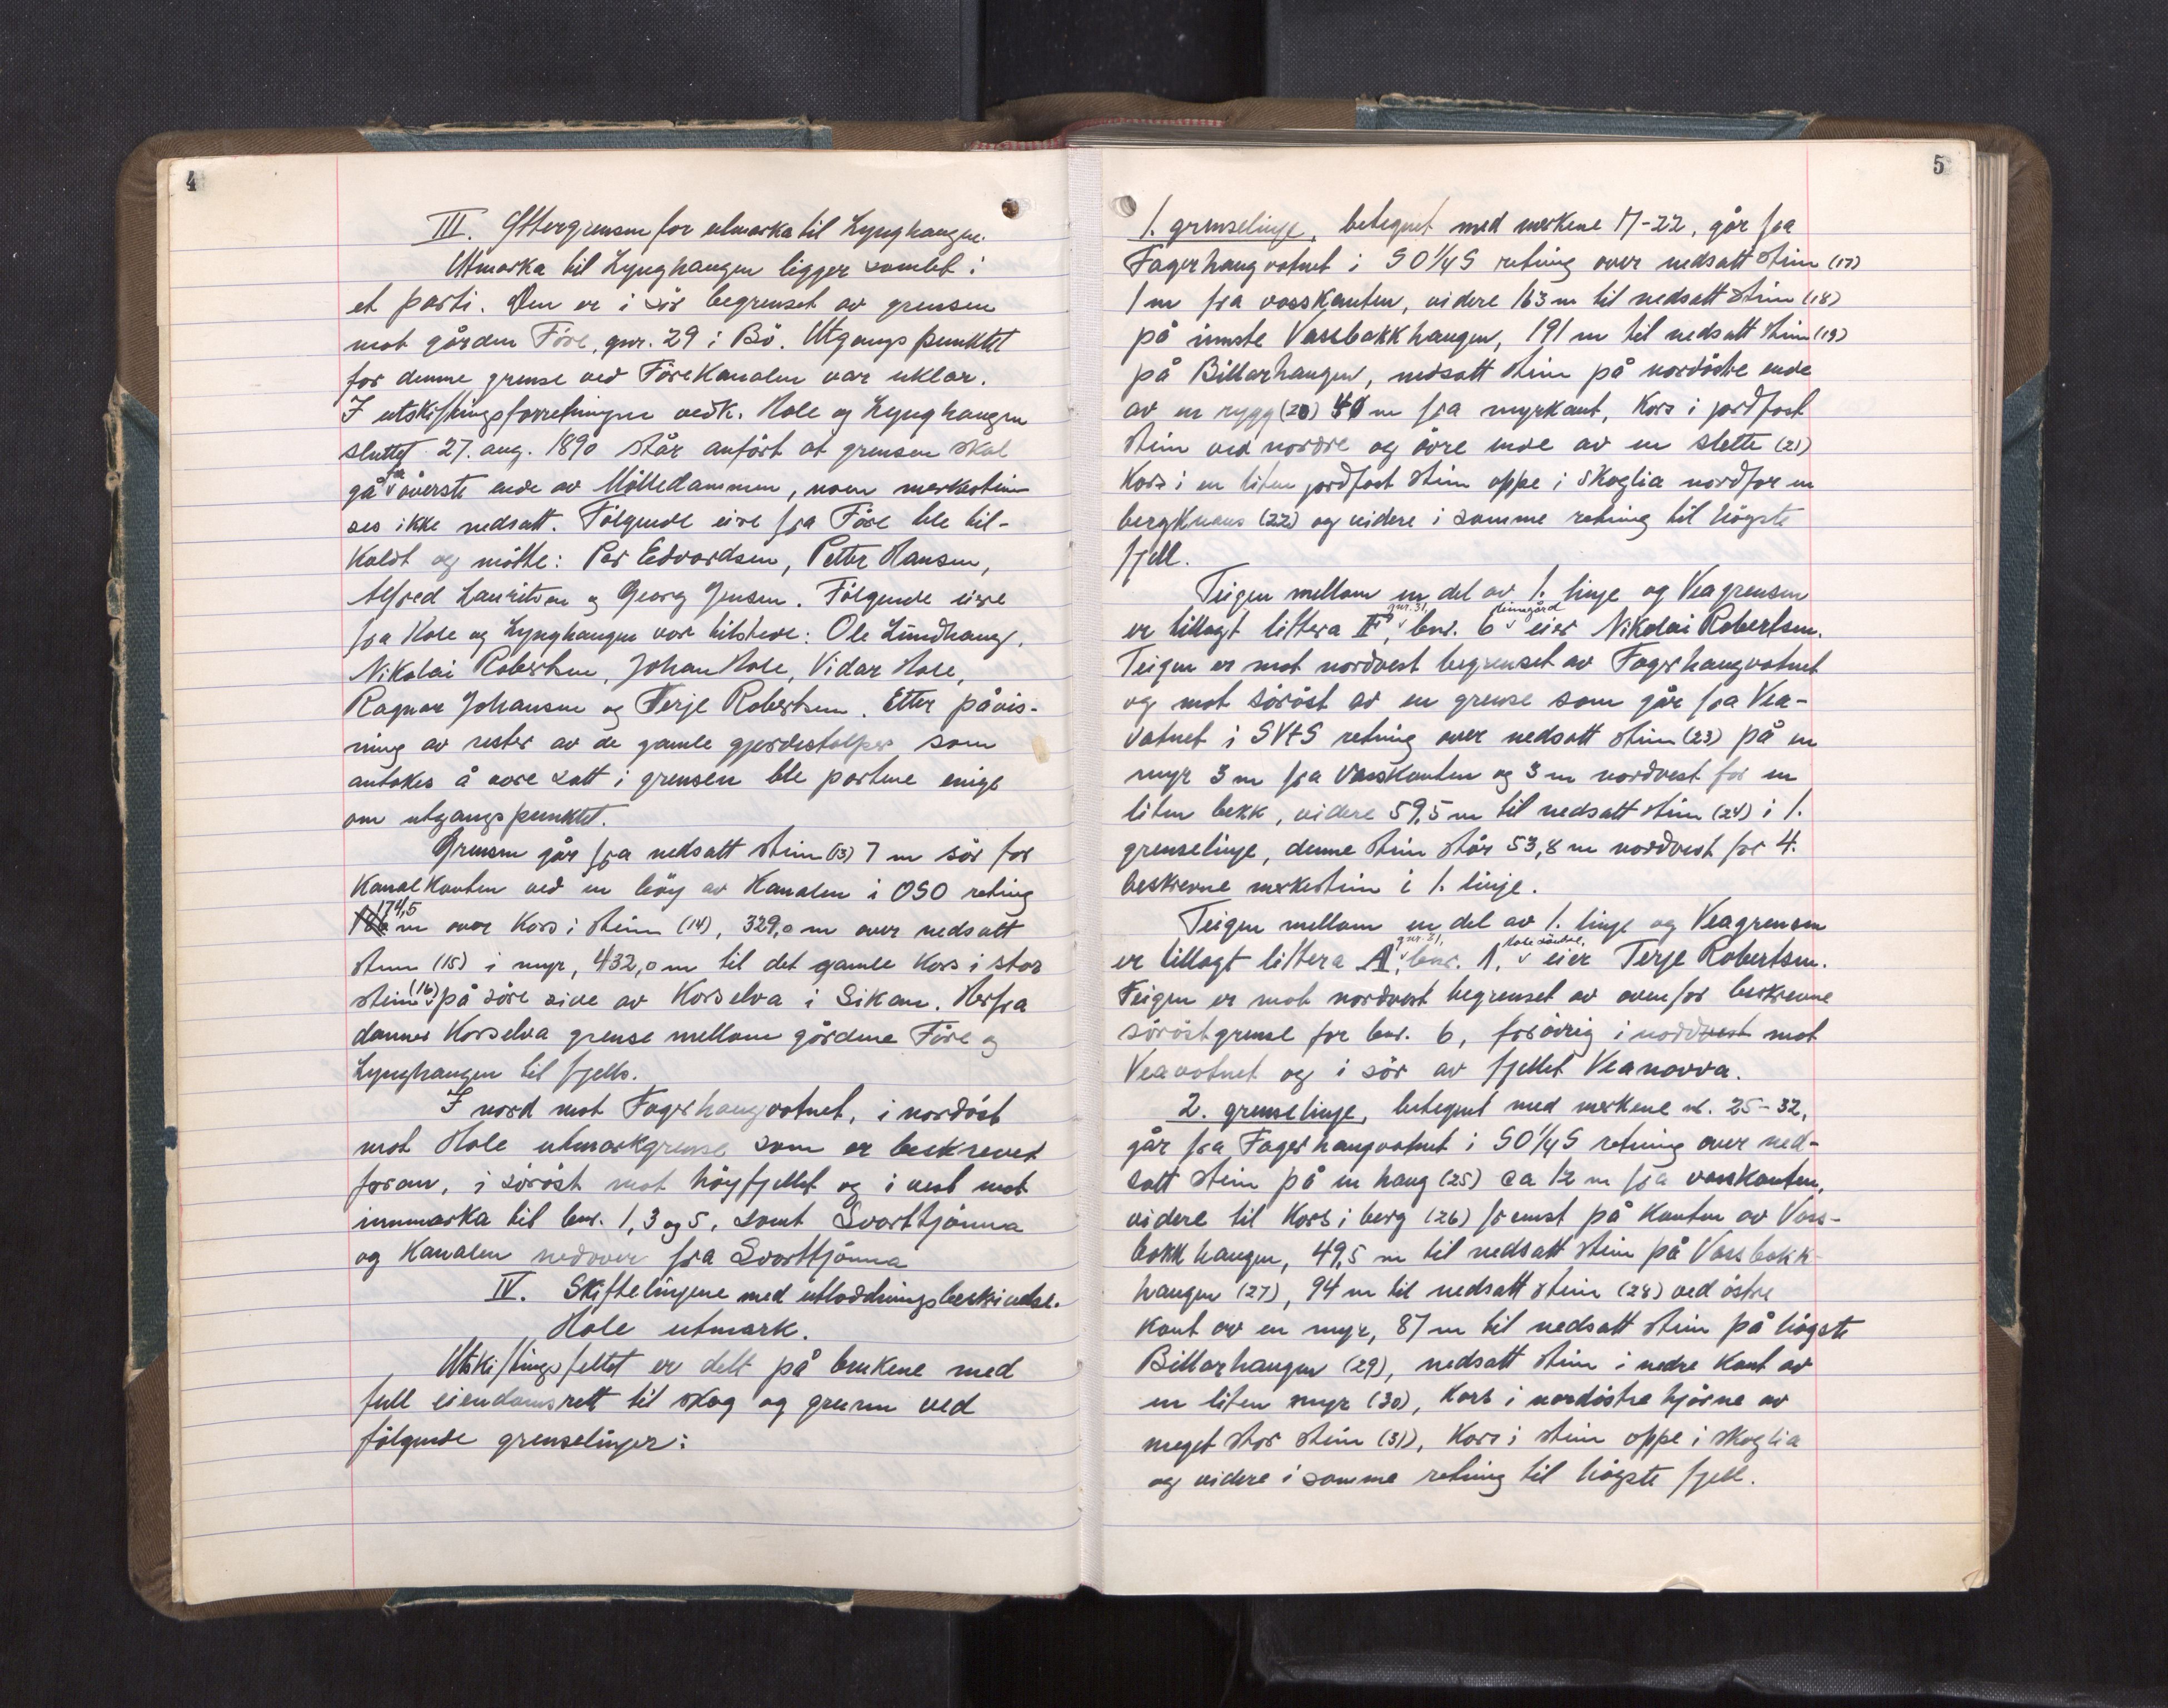 4
III. Yttergrensen for utmarka til Lynghaugen.
Utmarka til Lynghaugen ligger samlet i
et parti. Den er i sör begrenset av grensen
mot gården Före, gnr. 29 i Bö. Utgangspunktet
for denne grense ved Förekanalen var uklar.
I utskiftningsforretningen vedk. Hole og Lynghaugen
sluttet 27. aug. 1890 står anfört at grensen skal
gå fra överste ende av Mölledammen, noen merkestein
ses ikke nedsatt. Fölgende eire fra Före ble til-
kaldt og mötte: Per Edvardsen, Petter Hansen,
Alfred Lauritsen og Georg Jensen. Fölgende eire
fra Hole og Lynghaugen var tilstede: Ole Lundhaug,
Nikolai Robertsen, Johan Hole, Vidar Hole,
Ragnar Johansen og Terje Robertsen. Etter påvis-
ning av rester av de gamle gjerdestolper som
antokes å være satt i grensen ble partene enige
om utgangspunktet.
Grensen går fra nedsatt stein (13) 7 m sör for
kanalkanten ved en böy av kanalen i OSO retning
174,5 m over kors i stein (14), 329,0 m over nedsatt
stein (15) i myr, 432,0 m til det gamle kors i stor
stein (16) på söre side av Korselva i Sikan. Herfra
danner Korselva grense mellom gårdene Före og
Lynghaugen til fjells.
I nord mot Fagerhaugvatnet, i nordöst
mot Hole utmarkgrense som er beskrevet
foran, i söröst mot höyfjellet og i vest mot
innmarka til bnr. 1, 3 og 5, samt Svarttjönna
og Kanalen nedover fra Svarttjönna
IV. Skiftelinjene med utloddningsbeskrivelse.
Hole utmark.
Utskiftingsfeltet er delt på brukene med
full eiendomsrett til skog og grunn ved
fölgende grenselinjer:
5
1. grenselinje, betegnet med merkene 17-22, går fra
Fagerhaugvatnet i SO 1/4 S retning over nedsatt stein (17)
1 m fra vasskanten, videre 163 m til nedsatt stein (18)
på innste Vassbakkhaugen, 191 m til nedsatt stein (19)
på Billarhaugen, nedsatt stein på nordöstre ende
av en rygg (20) 40 m fra myrkant, kors i jordfast
stein ved nordre og övre ende av en slette (21)
Kors i en liten jordfast stein oppe i skoglia nordfor en
bergknaus (22) og videre i samme retning til högste
fjell.
Teigen mellom en del av 1. linje og Veagrensen
er tillagt littera F, gnr. 31, bnr. 6 eier Nikolai Robertsen.
Teigen er mot nordvest begrenset av Fagerhaugvatnet
og mot söröst av en grense som går fra Vea-
vatnet i SVtS retning over nedsatt stein (23) på en
myr 3 m fra vasskanten og 3 m nordvest for en
liten bekk, videre 59,5 m til nedsatt stein (24) i 1.
grenselinje, denne stein står 53,8 m nordvest for 4.
beskrevne merkestein i 1. linje.
Teigen mellom en del av 1. linje og Veagrensen
er tillagt littera A, gnr. 31, bnr. 1, Hole söndre, eier Terje Robertsen.
Teigen er mot nordvest begrenset av ovenfor beskrevne
söröstgrense for bnr. 6, forövrig i nordvest mot
Veavatnet og i sör av fjellet Veanovva.
2. grenselinje, betegnet med merkene nr. 25-32,
går fra Fagerhaugvatnet i SO 1/4 S retning over ned-
satt stein på en haug (25) ca 12 m fra vasskanten,
videre til kors i berg (26) fremst på kanten av Vass-
bakkhaugen, 49,5 m til nedsatt stein på Vassbakk-
haugen (27), 94 m til nedsatt stein (28) ved östre
kant av en myr, 87 m til nedsatt stein på högste
Billarhaugen (29), nedsatt stein i nedre kant av
en liten myr (30), kors i nordöstre hjörne av
meget stor stein (31), kors i stein oppe i skoglia
og videre i samme retning til högste fjell.